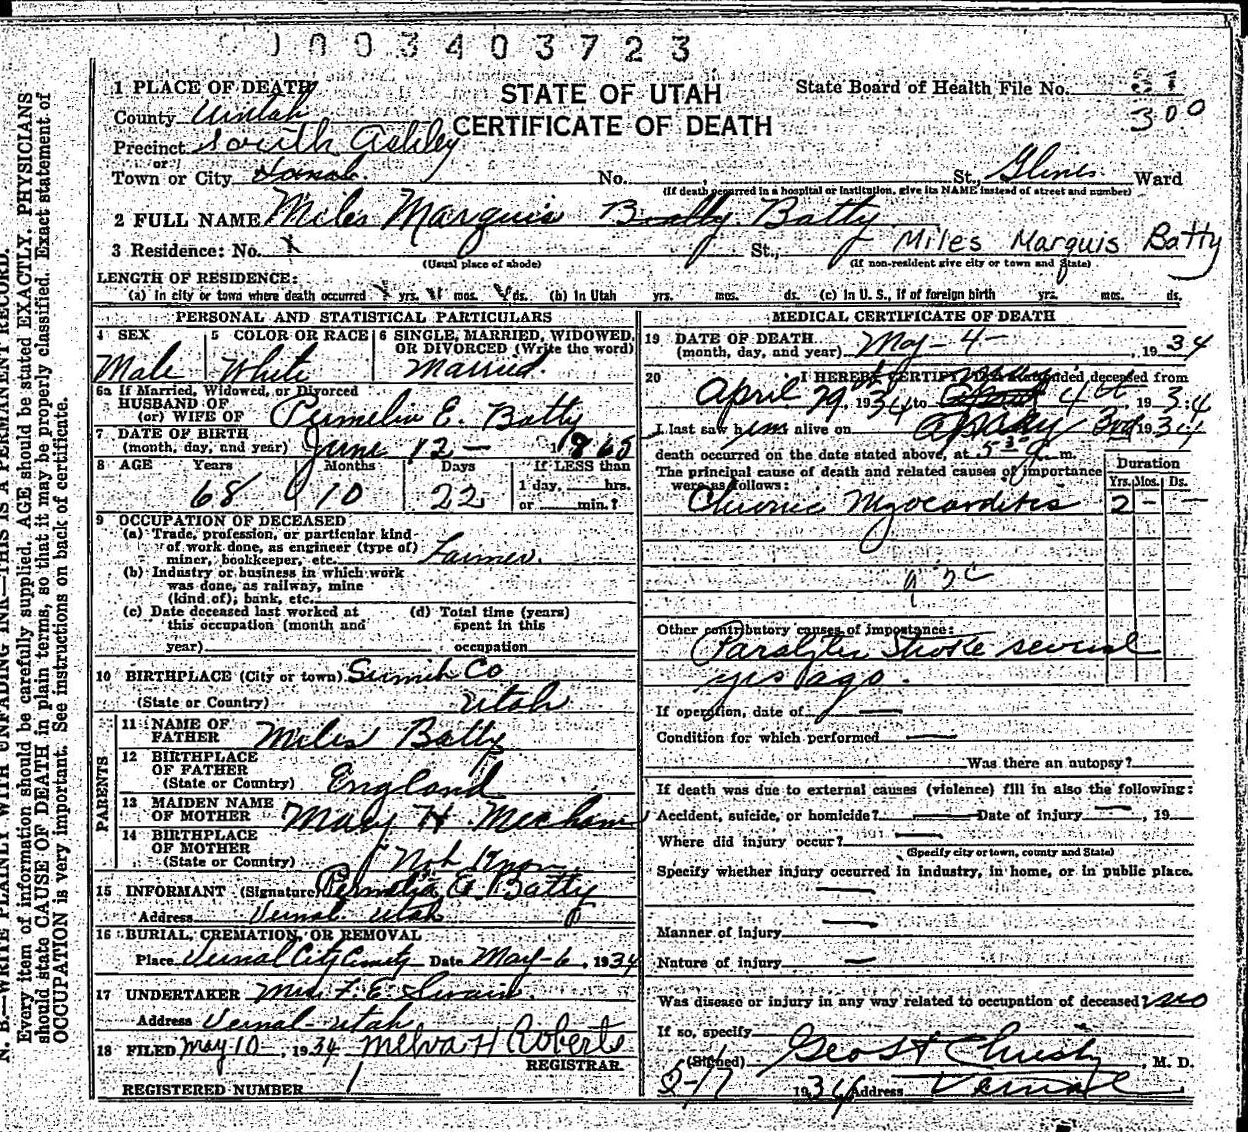 0003403723
1 PLACE OF DEATH
STATE OF UTAH
State Board of Health File No. 31
County Uintah
CERTIFICATE OF DEATH
300
Precinct South Ashley
or
Town or City No. St., Glines Ward
(If death occurred in a hospital or institution, give its NAME instead of street and number)
2 FULL NAME Miles Marquis Batty
3 Residence: No. St., Miles Marquis Batty
(Usual place of abode) (If non-resident give city or town and State)
LENGTH OF RESIDENCE:
(a) In city or town where death occurred yrs. mos. ds. (b) In Utah yrs. mos. ds. (c) In U. S., if of foreign birth yrs. mos. ds.
PERSONAL AND STATISTICAL PARTICULARS
4 SEX
Male
5 COLOR OR RACE
White
6 SINGLE, MARRIED, WIDOWED,
OR DIVORCED (Write the word)
Married.
6a If Married, Widowed, or Divorced
HUSBAND OF
(or) WIFE OF Permelia E. Batty
7 DATE OF BIRTH
(month, day, and year) June 12 - 1865
8 AGE Years Months Days If LESS than
68 10 22 1 day, hrs.
or min.?
9 OCCUPATION OF DECEASED
(a) Trade, profession, or particular kind
of work done, as engineer (type of)
miner, bookkeeper, etc. Farmer.
(b) Industry or business in which work
was done, as railway, mine
(kind of), bank, etc.
(c) Date deceased last worked at (d) Total time (years)
this occupation (month and spent in this
year) occupation
10 BIRTHPLACE (City or town) Summit Co
(State or Country) Utah
PARENTS
11 NAME OF
FATHER Miles Batty
12 BIRTHPLACE
OF FATHER
(State or Country) England
13 MAIDEN NAME
OF MOTHER Mary H. Mecham
14 BIRTHPLACE
OF MOTHER
(State or Country) Not Know
15 INFORMANT (Signature) Permelia E. Batty
Address Vernal Utah
16 BURIAL, CREMATION, OR REMOVAL
Place Vernal City Date May - 6, 1934
17 UNDERTAKER Mrs. F. E. Swain.
Address Vernal - Utah
18 FILED May 10, 1934 Melva H Roberts
REGISTRAR.
REGISTERED NUMBER 1
MEDICAL CERTIFICATE OF DEATH
19 DATE OF DEATH
(month, day, and year) May - 4 - , 1934
20 I HEREBY CERTIFY, That I attended deceased from
April 29 1934 to 4th, 1934
I last saw him alive on May 3rd 1934
death occurred on the date stated above, at 5 30 a m.
The principal cause of death and related causes of importance
were as follows:
Duration
Yrs. Mos. Ds.
Chronic Myocarditis 2 - -
Other contributory causes of importance:
Paralytic Stroke several
yrs ago.
If operation, date of —
Condition for which performed —
Was there an autopsy?
If death was due to external causes (violence) fill in also the following:
Accident, suicide, or homicide? — Date of injury — , 19
Where did injury occur? —
(Specify city or town, county and State)
Specify whether injury occurred in industry, in home, or in public place.
—
—
Manner of injury
Nature of injury —
Was disease or injury in any way related to occupation of deceased? no
If so, specify
(Signed) Geo St Christy, M. D.
5-17 1934 Address Vernal
N. B.—WRITE PLAINLY WITH UNFADING INK—THIS IS A PERMANENT RECORD.
Every item of information should be carefully supplied. AGE should be stated EXACTLY. PHYSICIANS
should state CAUSE OF DEATH in plain terms, so that it may be properly classified. Exact statement of
OCCUPATION is very important. See instructions on back of certificate.